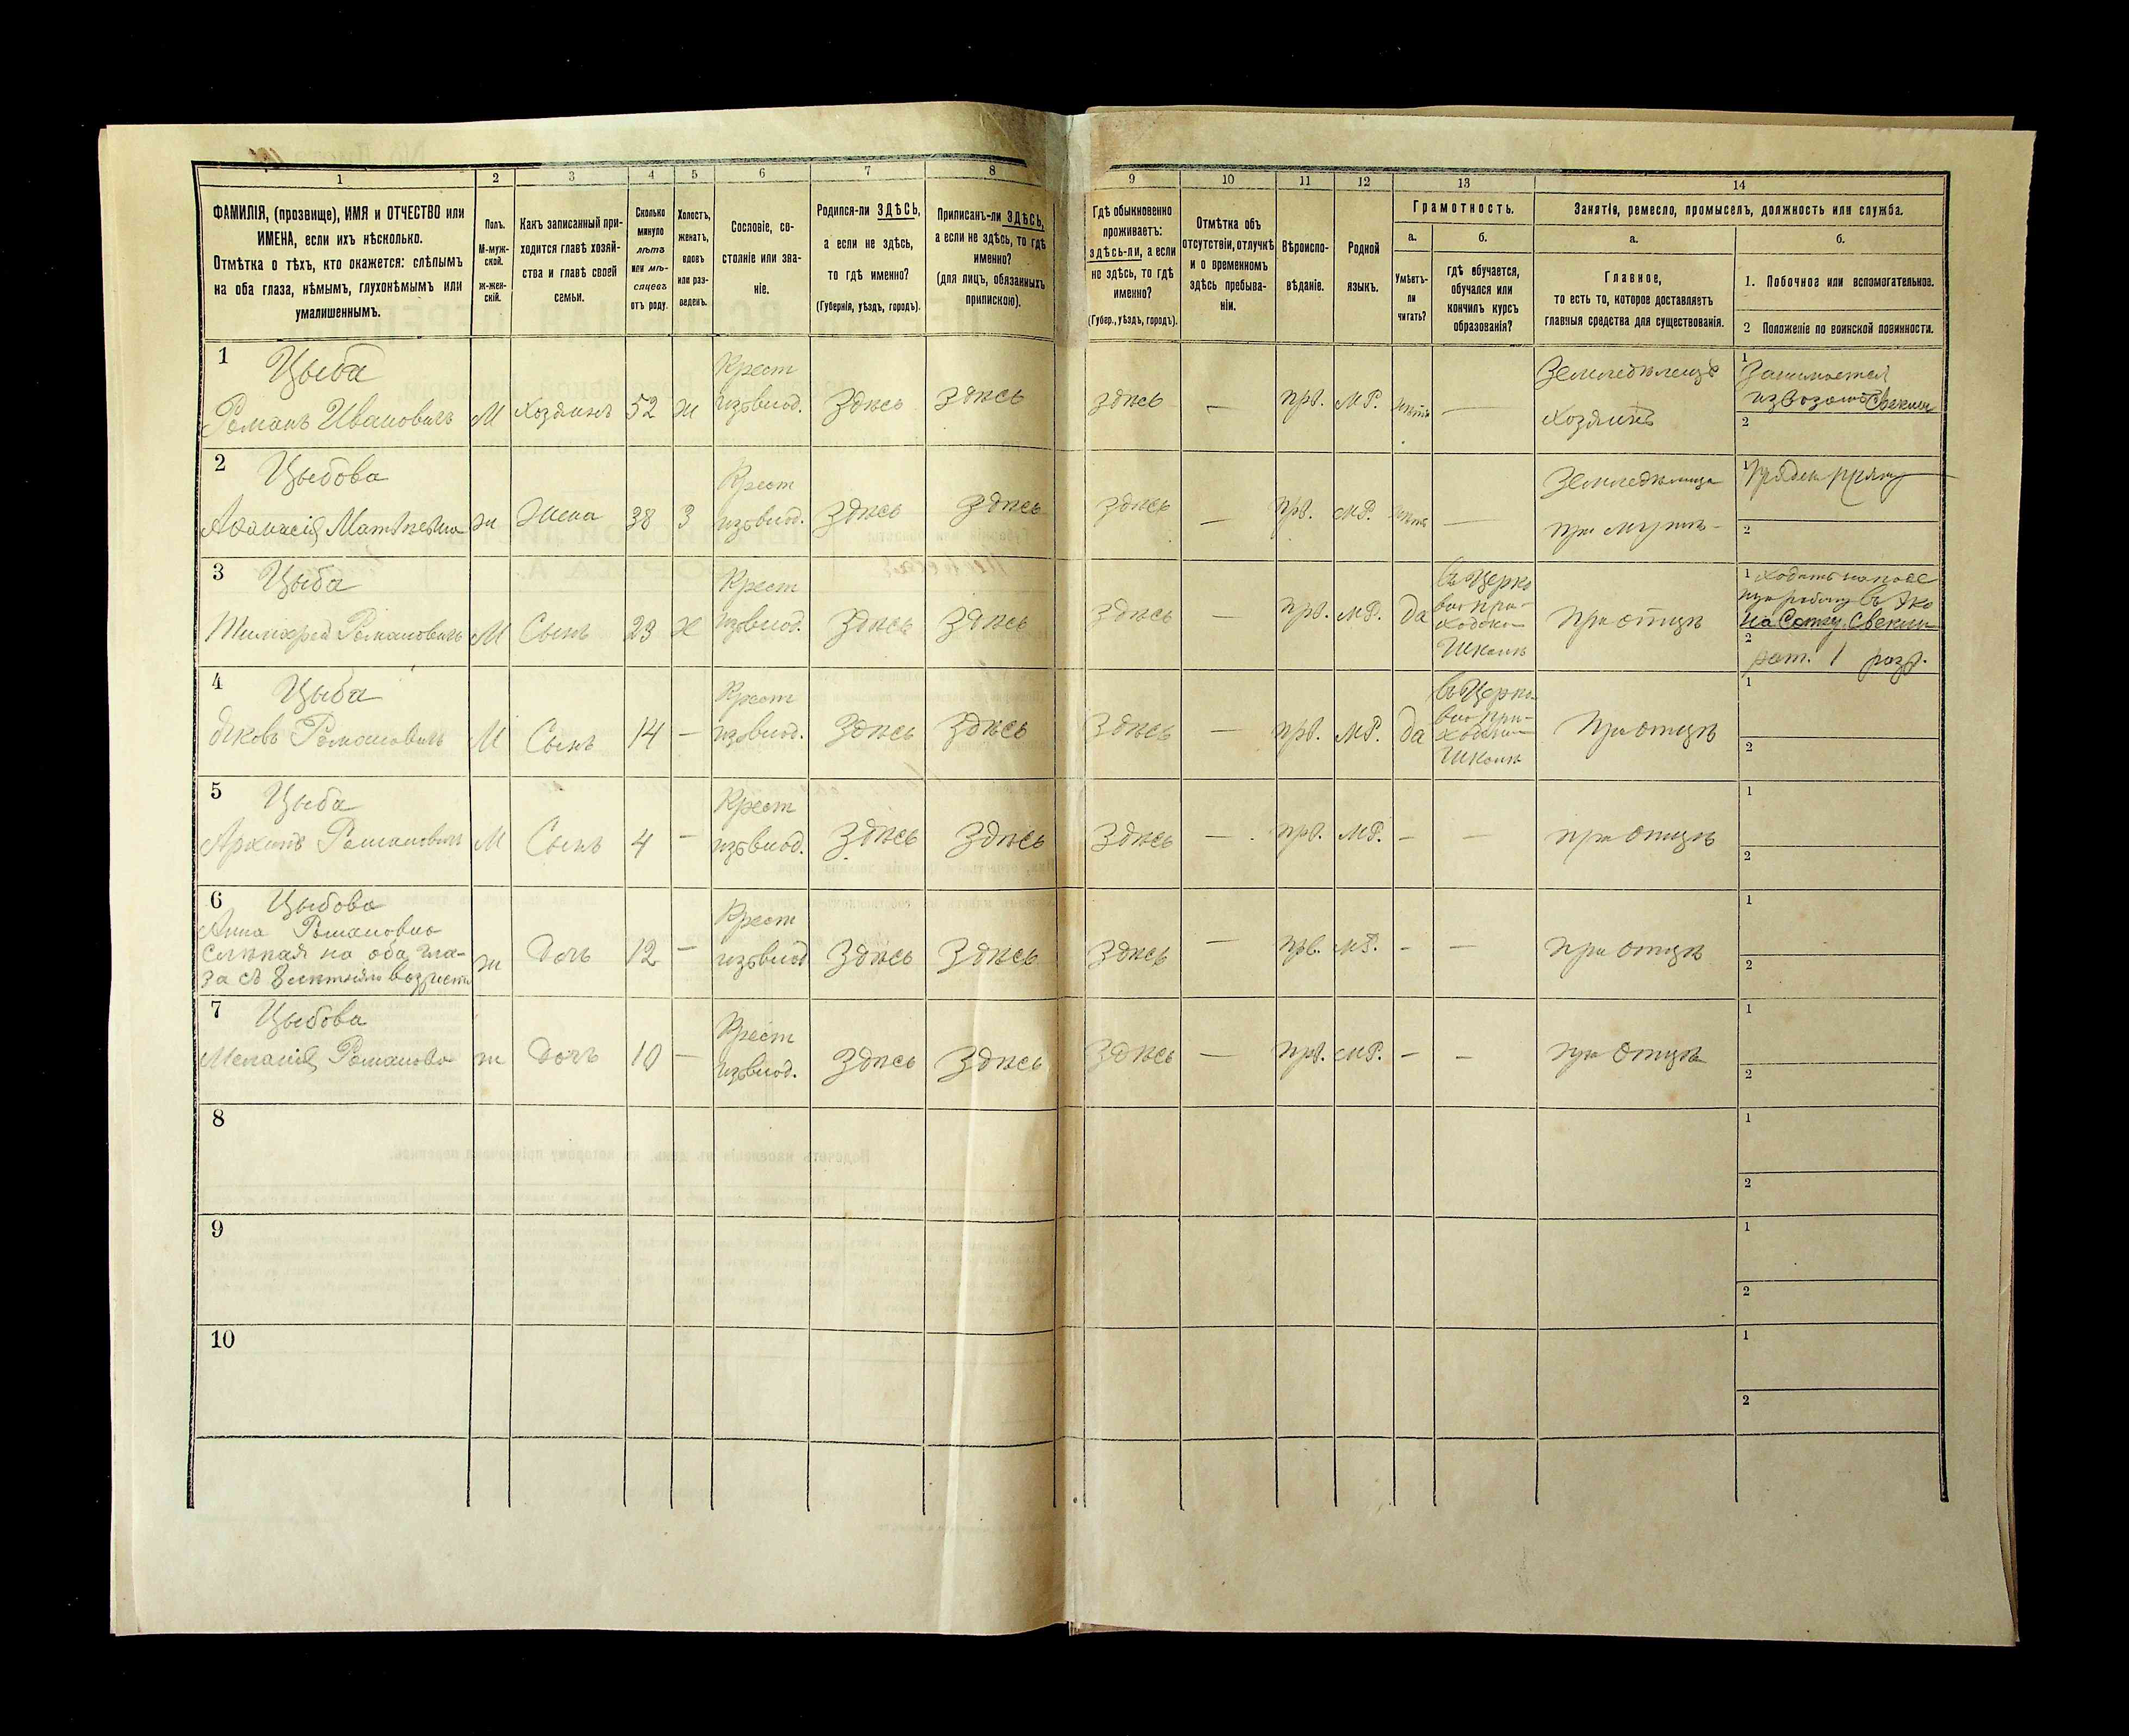 1 2 3 4 5 6 7 8 9 10 11 12 13 14
ФАМИЛІЯ, (прозвище), ИМЯ и ОТЧЕСТВО или
ИМЕНА, если ихъ нѣсколько.
Отмѣтка о тѣхъ, кто окажется: слѣпымъ
на оба глаза, нѣмымъ, глухонѣмымъ или
умалишеннымъ.
Полъ.
М-муж-
ской.
Ж-жен-
скій.
Какъ записанный при-
ходится главѣ хозяй-
ства и главѣ своей
семьи.
Сколько
минуло
лѣтъ
или мѣ-
сяцевъ
отъ роду.
Холостъ,
женатъ,
вдовъ
или раз-
веденъ.
Сословіе, со-
стояніе или зва-
ніе.
Родился-ли ЗДѢСЬ,
а если не здѣсь,
то гдѣ именно?
(Губернія, уѣздъ, городъ).
Приписанъ-ли ЗДѢСЬ,
а если не здѣсь, то гдѣ
именно?
(для лицъ, обязанныхъ
припискою).
Гдѣ обыкновенно
проживаетъ:
здѣсь-ли, а если
не здѣсь, то гдѣ
именно?
(Губер., уѣздъ, городъ).
Отмѣтка объ
отсутствіи, отлучкѣ
и о временномъ
здѣсь пребыва-
ніи.
Вѣроиспо-
вѣданіе.
Родной
языкъ.
Грамотность.
а.
Умѣетъ-
ли
читать?
б.
гдѣ обучается,
обучался или
кончилъ курсъ
образованія?
Занятіе, ремесло, промыселъ, должность или служба.
а.
Главное,
то есть то, которое доставляетъ
главныя средства для существованія.
б.
1. Побочное или вспомогательное.
2 Положеніе по воинской повинности.
1 Цыба
Романъ Ивановичъ М Хозяинъ 52 ж
Крест
изъ влад. Здѣсь Здѣсь здѣсь — прв. МР. нѣтъ —
Земледѣлецъ
Хозяинъ
1 Занимается
извозомъ Свеклы
2
2 Цыбова
Афанасія Матѣевна ж Жена 38 З
Крест
изъ влад. Здѣсь Здѣсь здѣсь — прв. МР. нѣтъ —
Земледѣлица
при мужѣ
1 Прядетъ пряжу
2
3 Цыба
Тимофей Романовичъ М Сынъ 23 х
Крест
изъ влад. Здѣсь Здѣсь Здѣсь — прв. МР. да
въ Церко
вно при-
ходско
Школѣ
При отцѣ
1 Ходитъ
въ Эко
Свеклы
2
рат. 1 разр.
4 Цыба
Яковъ Романовичъ М Сынъ 14 —
Крест
изъ влад. Здѣсь Здѣсь Здѣсь — прв. МР. да
въ Церко
вно при-
ходско
Школѣ
При отцѣ
1
2
5 Цыба
Архипъ Романовичъ М Сынъ 4 —
Крест
изъ влад. Здѣсь Здѣсь Здѣсь — прв. МР. — —
при отцѣ
1
2
6 Цыбова
Анна Романовна
Слѣпая на оба гла-
за съ 8 лѣтняго возраста ж Дочь 12 —
Крест
изъ влад Здѣсь Здѣсь Здѣсь — прв. МР. — —
при отцѣ
1
2
7 Цыбова
Меланія Романова ж Дочь 10 —
Крест
изъ влад. Здѣсь Здѣсь Здѣсь — прв. МР. — —
при отцѣ
1
2
8
1
2
9
1
2
10
1
2